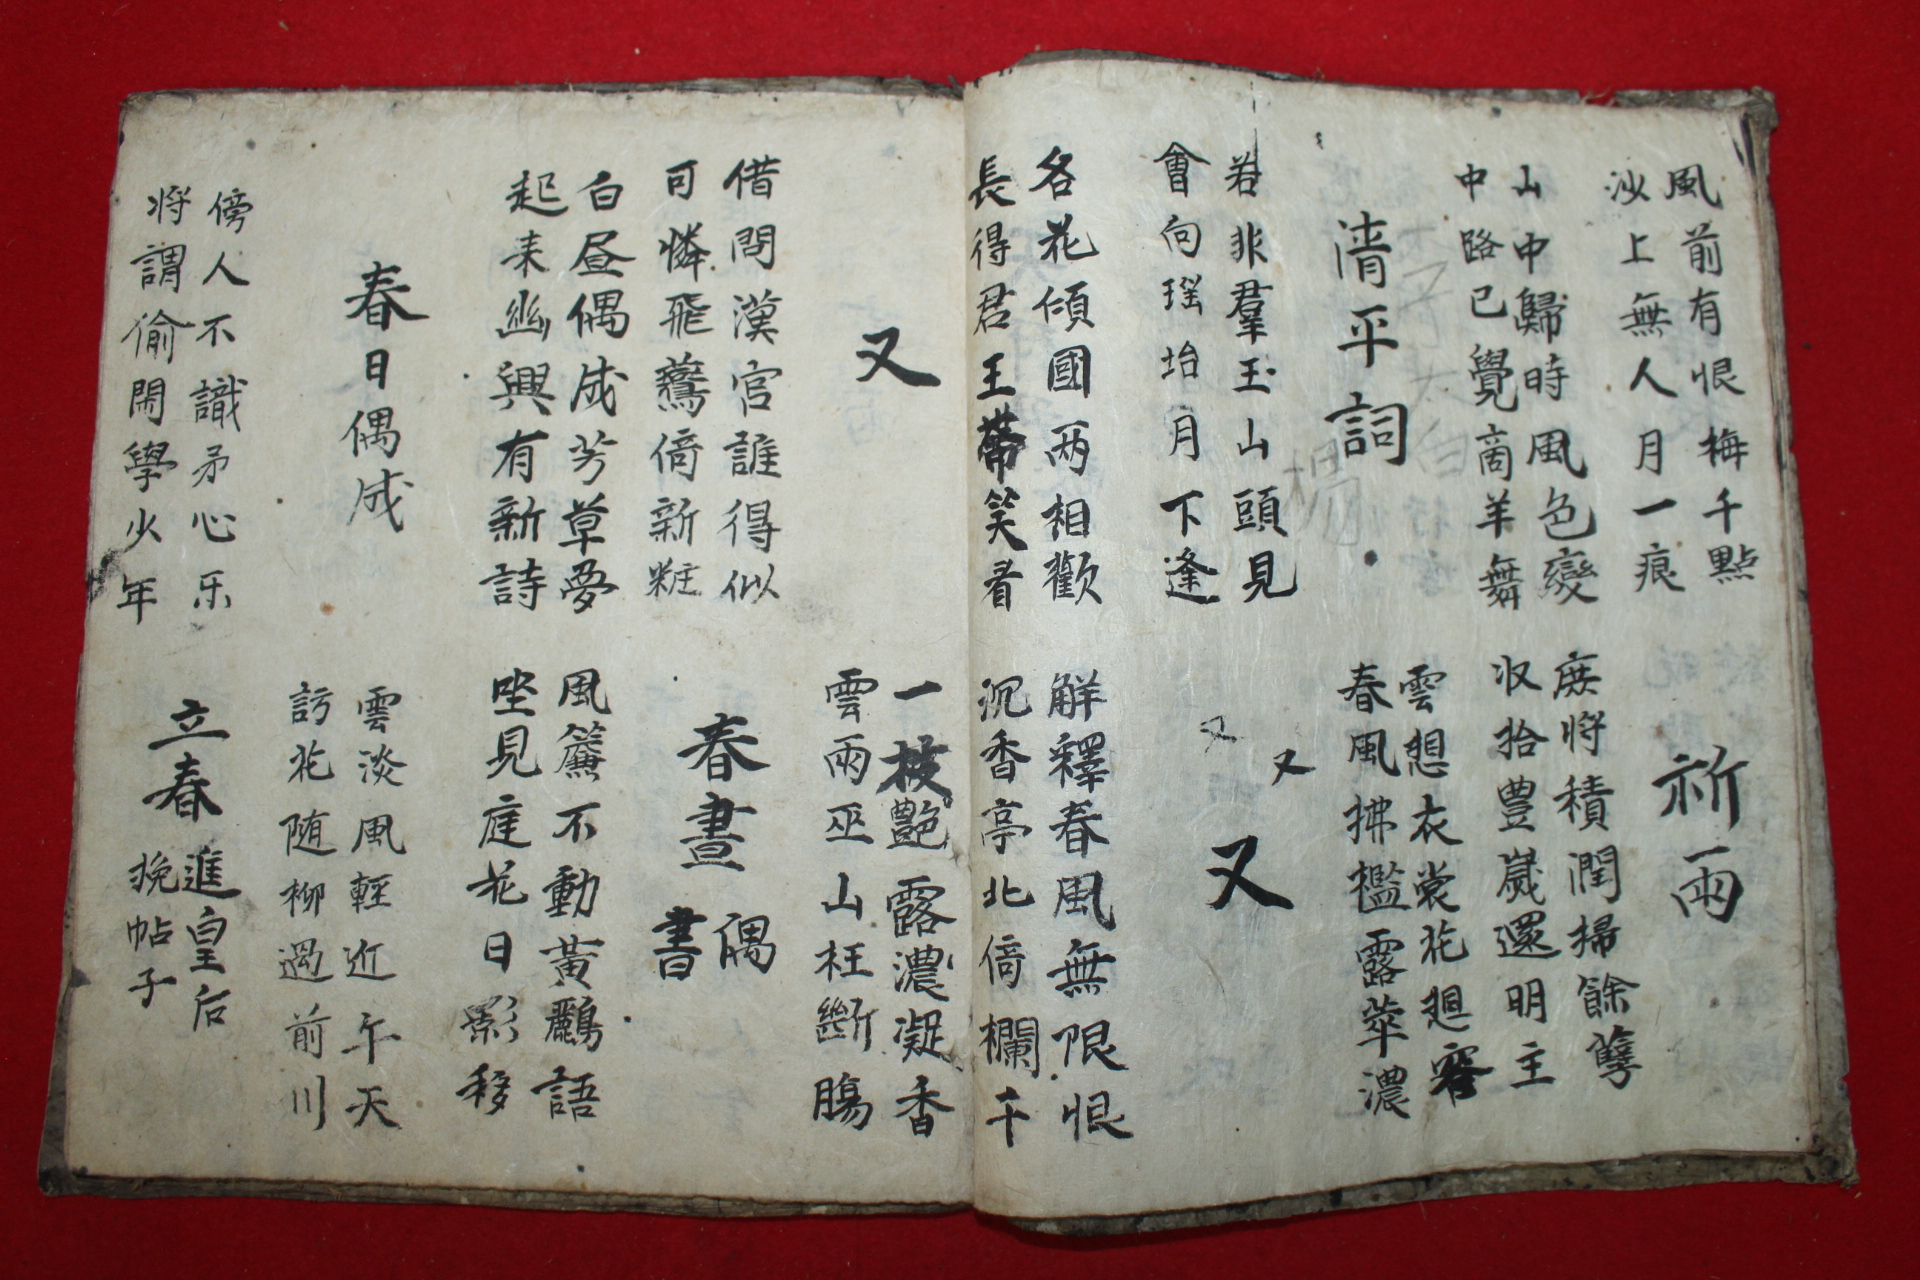 風前有恨梅千點
沙上無人月一痕
祈雨
山中歸時風色變
中路已覺商羊舞
庶将積潤掃餘孽
収拾豊歲還明主
清平詞
雲想衣裳花廻容
春風拂檻露華濃
若非羣玉山頭見
會向瑶坮月下逢
又
又
又
各花傾國兩相歡
長得君王帶笑看
解釋春風無限恨
沉香亭北倚欄干
又
一枝艶露濃凝香
雲雨巫山枉斷膓
借問漢宮誰得似
可憐飛鷰倚新粧
春晝偶書
白昼偶成芳草夢
起来幽興有新詩
風簾不動黃鸝語
坐見庭花日影移
春日偶成
雲淡風輕近午天
訪花随柳過前川
傍人不識矛心乐
将謂偷閑學少年
立春
進皇后
挽帖子